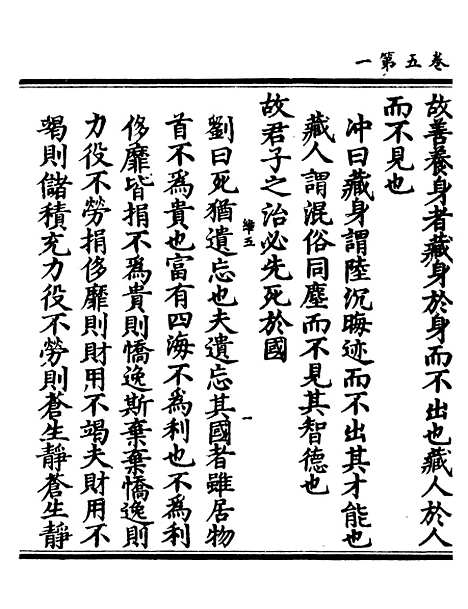 卷五第一
故善養身者藏身於身而不出也藏人於人
而不見也
冲曰藏身謂陸沉晦迹而不出其才能也
藏人謂混俗同塵而不見其智德也
故君子之治必先死於國
劉曰死猶遺忘也夫遺忘其國者雖居物
首不為貴也富有四海不為利也不為利
侈靡皆捐不為貴則憍逸斯棄棄憍逸則
力役不勞捐侈靡則財用不竭夫財用不
竭則儲積充力役不勞則蒼生靜蒼生靜
五
一